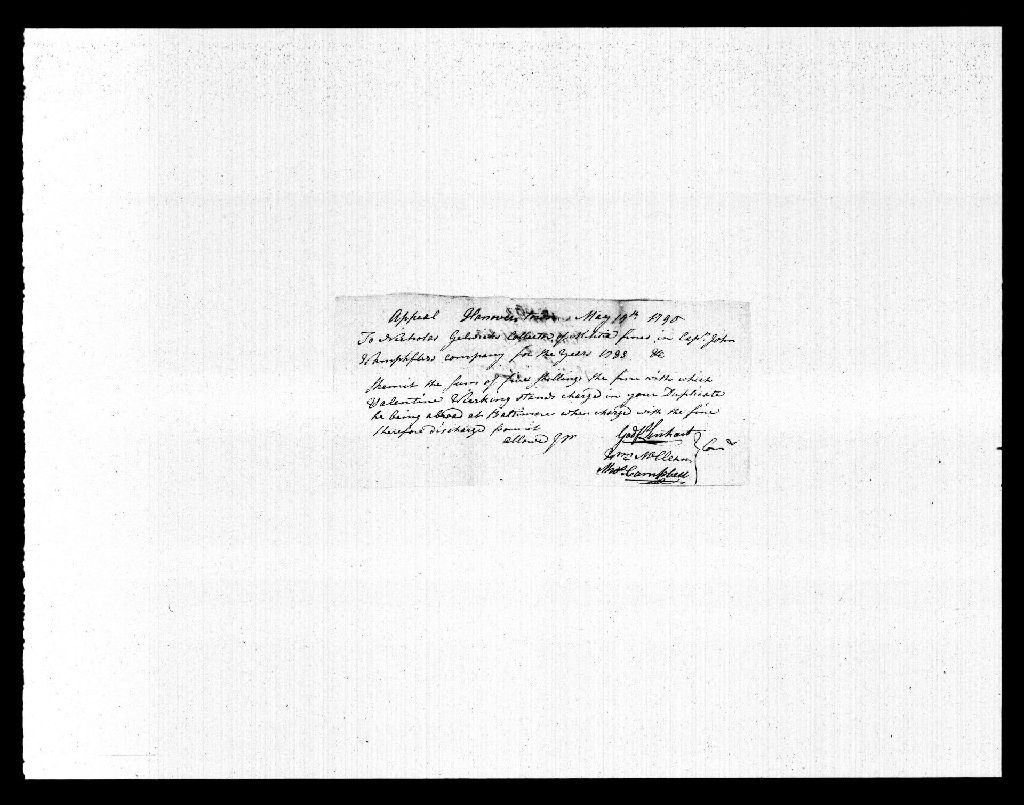 Appeal Hanover May 19th 1790
To Nicholas Collector of Militia fines in Capt. John
company for the Years 1788 &c
Remit the sum of five shillings the fine with which
Valentine Wierking stands charged in your Duplicate
he being abroad at Baltimore when charge with the fine
therefore discharge from it
allowed
Godf. Lenhart
McClean
Campbell